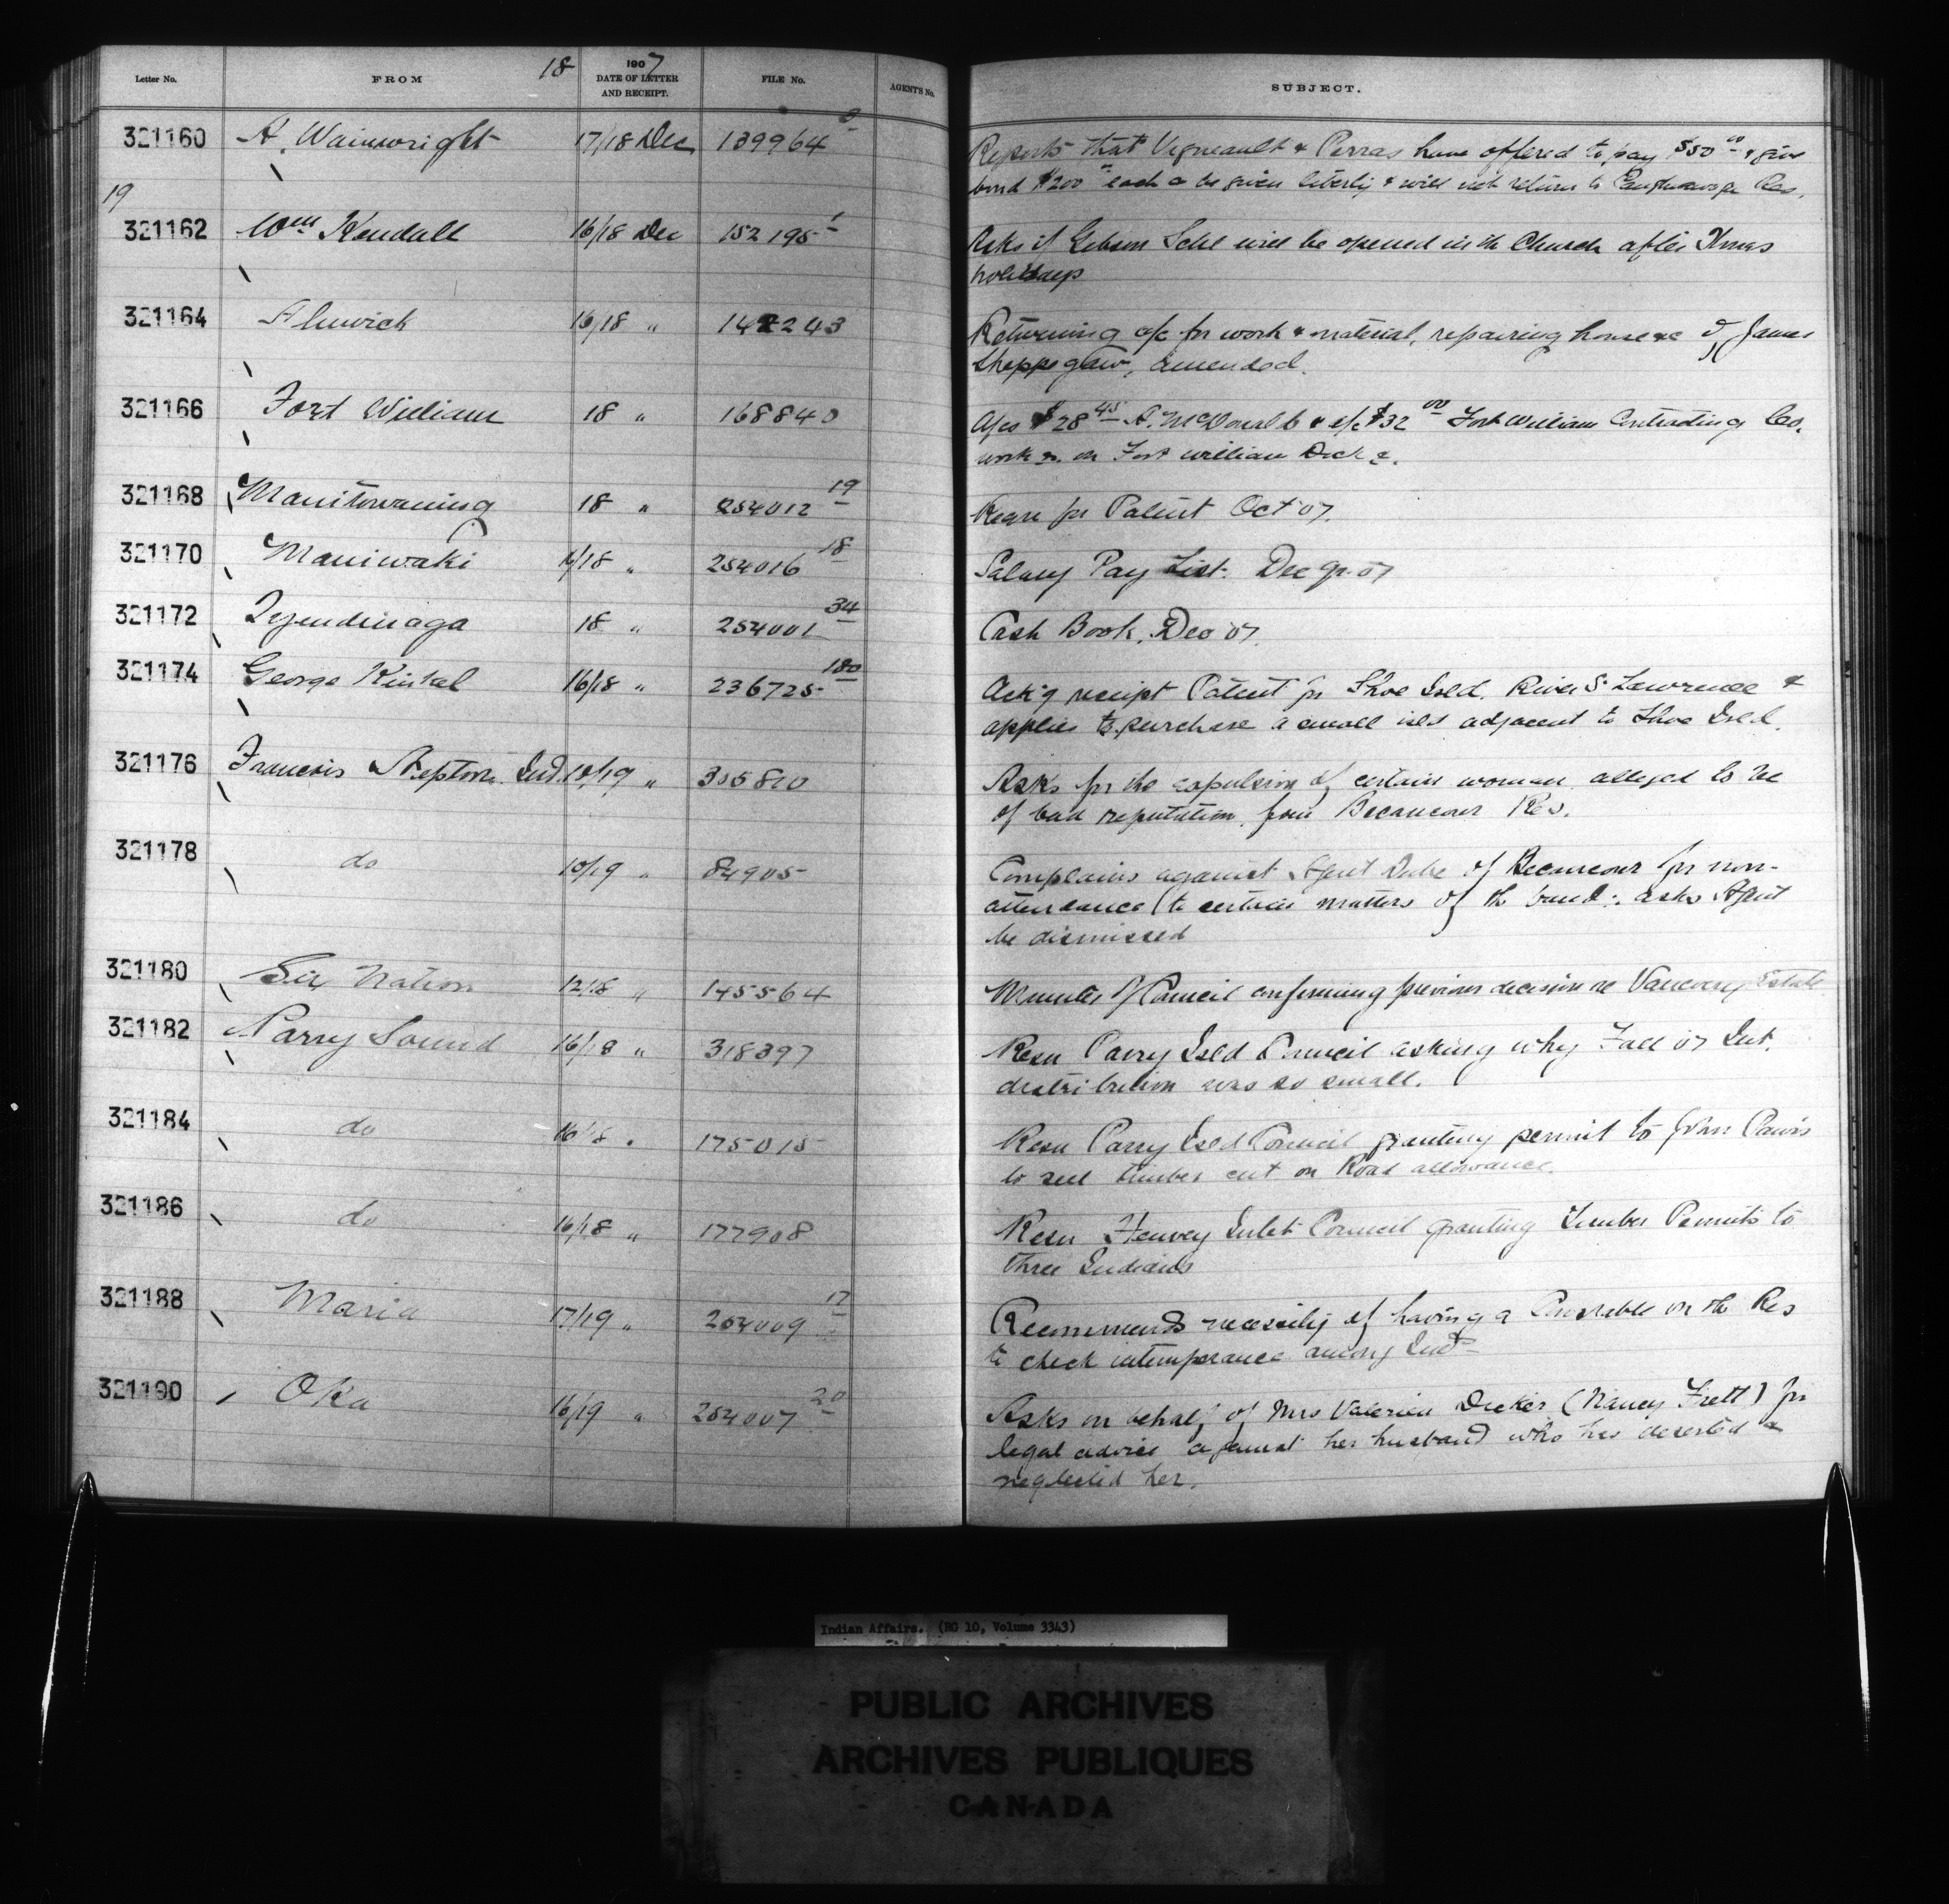 Letter No. FROM 18 1907 DATE OF LETTER AND RECEIPT. FILE No. AGENT'S No. SUBJECT.
321160 A. Wainwright 17/18 Dec 139964 Reports that Vigneault & Perras have offered to pay $50 00 & give
bond $200 each be given liberty & will not return to Caughnawaga Res.
19
321162 Wm Kendall 16/18 Dec 152195 1 Asks if Gibson Schl will be opened in the Church after Xmas
holidays
321164 Alnwick 16/18 " 142243 Returning a/c for work & material, repairing house &c of James
Shoppegaw, amended.
321166 Fort William 18 " 168840 A/cs $28 45 A. McDonald & a/c $32 00 Fort William Contracting Co.
work on Fort William Dock
321168 Manitowaning 18 " 254012 19 for Patent Oct 07.
321170 Maniwaki 16/18 " 254016 18 Salary Pay List. Dec qr. 07
321172 Tyendinaga 18 " 254001 34 Cash Book, Dec 07.
321174 George Kinkel 16/18 " 236725 180 Ack'g receipt Patent for Shoe Isld. River St Lawrence &
applies to purchase a small isld adjacent to Shoe Isld.
321176 Francois Ind. 10/19 " 305810 Asks for the expulsion of certain woman alleged to be
of bad reputation, from Becancour Res.
321178 do 10/19 " 84905 Complains against Agent Dube of Becancour for non-
attendance to certain matters of the band: asks Agent
be dismissed
321180 Six Nation 12/18 " 145564 Minutes of Council confirming previous decision re Vanevery Estate
321182 Parry Sound 16/18 " 318397 Resn Parry Isld Council asking why Fall 07 Int.
distribution was so small.
321184 do 16/18 " 175015 Resn Parry Isld Council granting permit to John Pawis
to sell timber cut on Road allowance.
321186 do 16/18 " 177908 Resn Henvey Inlet Council granting Timber Permits to
three Indians
321188 Maria 17/19 " 254009 17 Recommends necessity of having a Constable on the Res
to check intemperance among Inds
321190 Oka 16/19 " 254007 20 Asks on behalf of Mrs Valerien Dicker (Nancy Frett) for
legal advice against her husband who has deserted &
neglected her.
Indian Affairs. (RG 10, Volume 3343)
PUBLIC ARCHIVES
ARCHIVES PUBLIQUES
CANADA